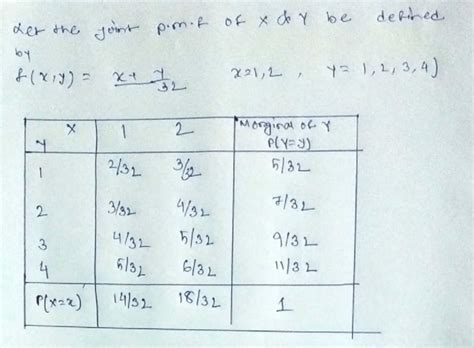 Let the joint p.m.f of X & Y be defined
by
f(x,y) = x+y/32 x=1,2, y=1,2,3,4)
X 1 2 Marginal of Y
Y P(Y=y)
1 2/32 3/32 5/32
2 3/32 4/32 7/32
3 4/32 5/32 9/32
4 5/32 6/32 11/32
P(X=x) 14/32 18/32 1